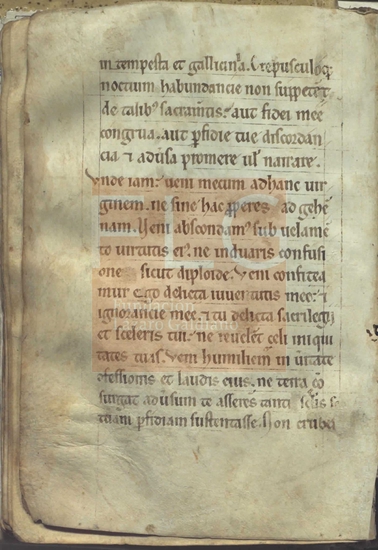 in tempesta et gallicinia. Crepusculoq;
noctium habundancie non suppetēt
de talib; sacram̄tis. aut fidei mee
congrua. aut ꝑfidie tue discordan
cia & adūsa promere ul' narrare.
Unde iam. ueni mecum ad hanc uir
ginem. ne sine hac ꝓperes ad gehe
nam. Veni abscondam' sub uelame
to uirtutis ei'. ne induaris confusi
one sicut diploide. Veni confitea
mur Ego delicta iuuentutis mee. &
ignorancie mee. & tu delicta sacrilegii
et sceleris tui. ne reuelēt celi iniqui
tates tuas. Veni humiliem in ūitate
ꝯfessionis et laudis eius. ne terra co
surgat adūsum te asseres tanti
ꝑfidiam sustentasse. Non erubes
Fundación
Lázaro Galdiano